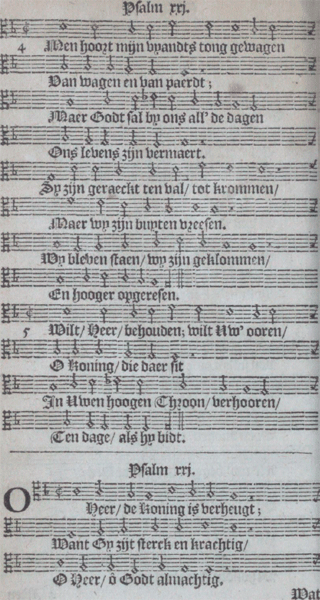 Psalm xxj.
4 Men hoort mijn vyandts tong gewagen
Van wagen en van paerdt;
Maer Godt sal by ons all' de dagen
Ons levens zijn vermaert.
Sy zijn geraeckt ten val/ tot krommen/
Maer wy zijn buyten vreesen.
Wy bleven staen/ wy zijn geklommen/
En hooger opgeresen.
5 Wilt/ Heer/ behouden; wilt Uw' ooren/
O Koning/ die daer sit
In Uwen hoogen Throon/ verhooren/
Ten dage/ als hy bidt.
Psalm xxj.
O Heer/ de Koning is verheugt;
Want Gy zijt sterck en krachtig/
O Heer/ ô Godt almachtig.
Wat